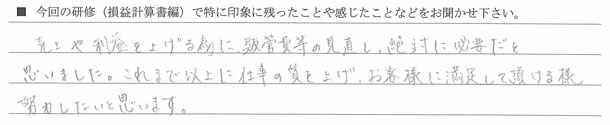 ■ 今回の研修（損益計算書編）で特に印象に残ったことや感じたことなどをお聞かせ下さい。
売上や利益を上げる為に、販管費等の見直し、絶対に必要だと
思いました。これまで以上に仕事の質を上げ、お客様に満足して頂ける様、
努力したいと思います。